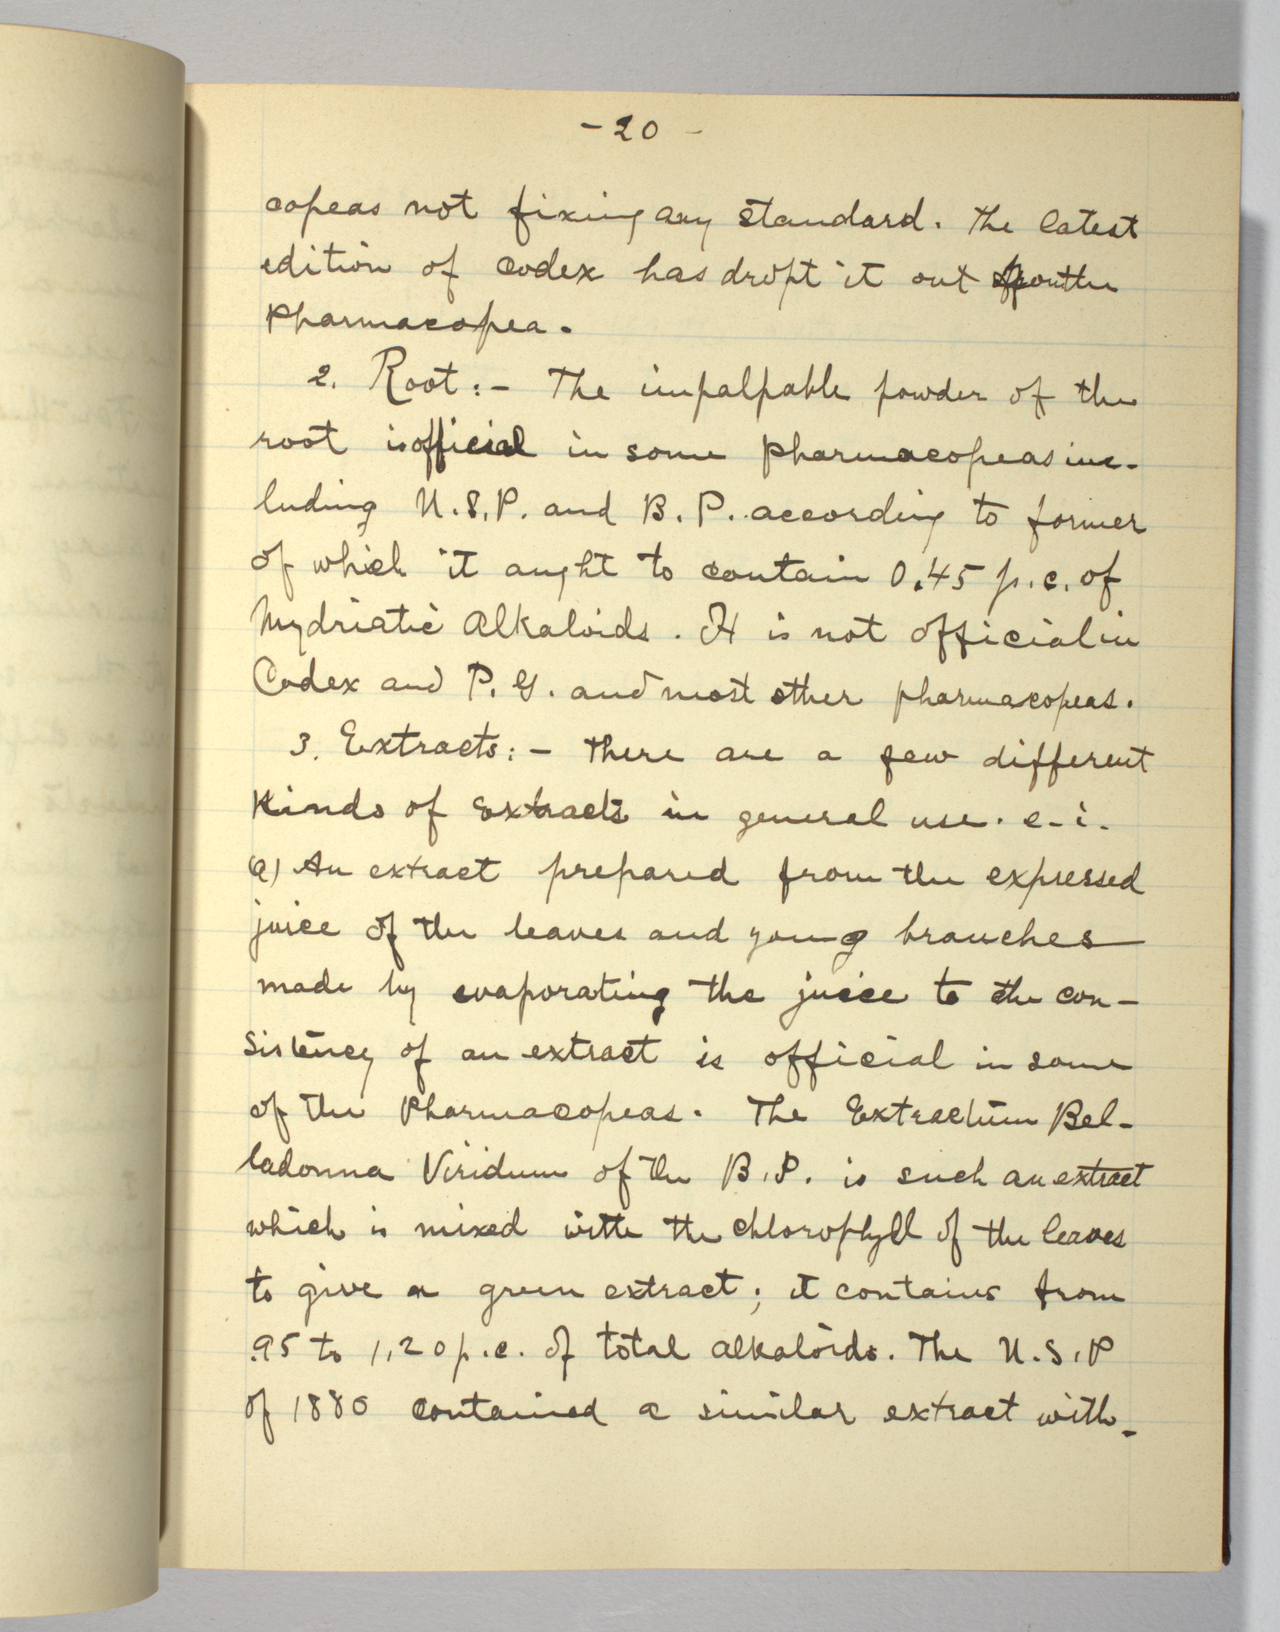 - 20 -
copeas not fixing any standard. The latest
edition of Codex has dropt it out from the
Pharmacopea.
2. Root:- The impalpable powder of the
root is official in some Pharmacopeas inc-
luding U.S.P. and B.P. according to former
of which it aught to contain 0.45 p.c. of
Mydriatic Alkaloids. It is not official in
Codex and P.G. and most other pharmacopeas.
3. Extracts:- There are a few different
Kinds of Extracts in general use. e.i.
(a) An extract prepared from the expressed
juice of the leaves and young branches
made by evaporating the juice to the con-
sistency of an extract is official in some
of the Pharmacopeas. The Extractum Bel-
ladonna Viridum of the B.P. is such an extract
which is mixed with the chlorophyll of the leaves
to give a green extract; it contains from
.95 to 1,20 p.c. of total alkaloids. The U.S.P
of 1880 contained a similar extract with-